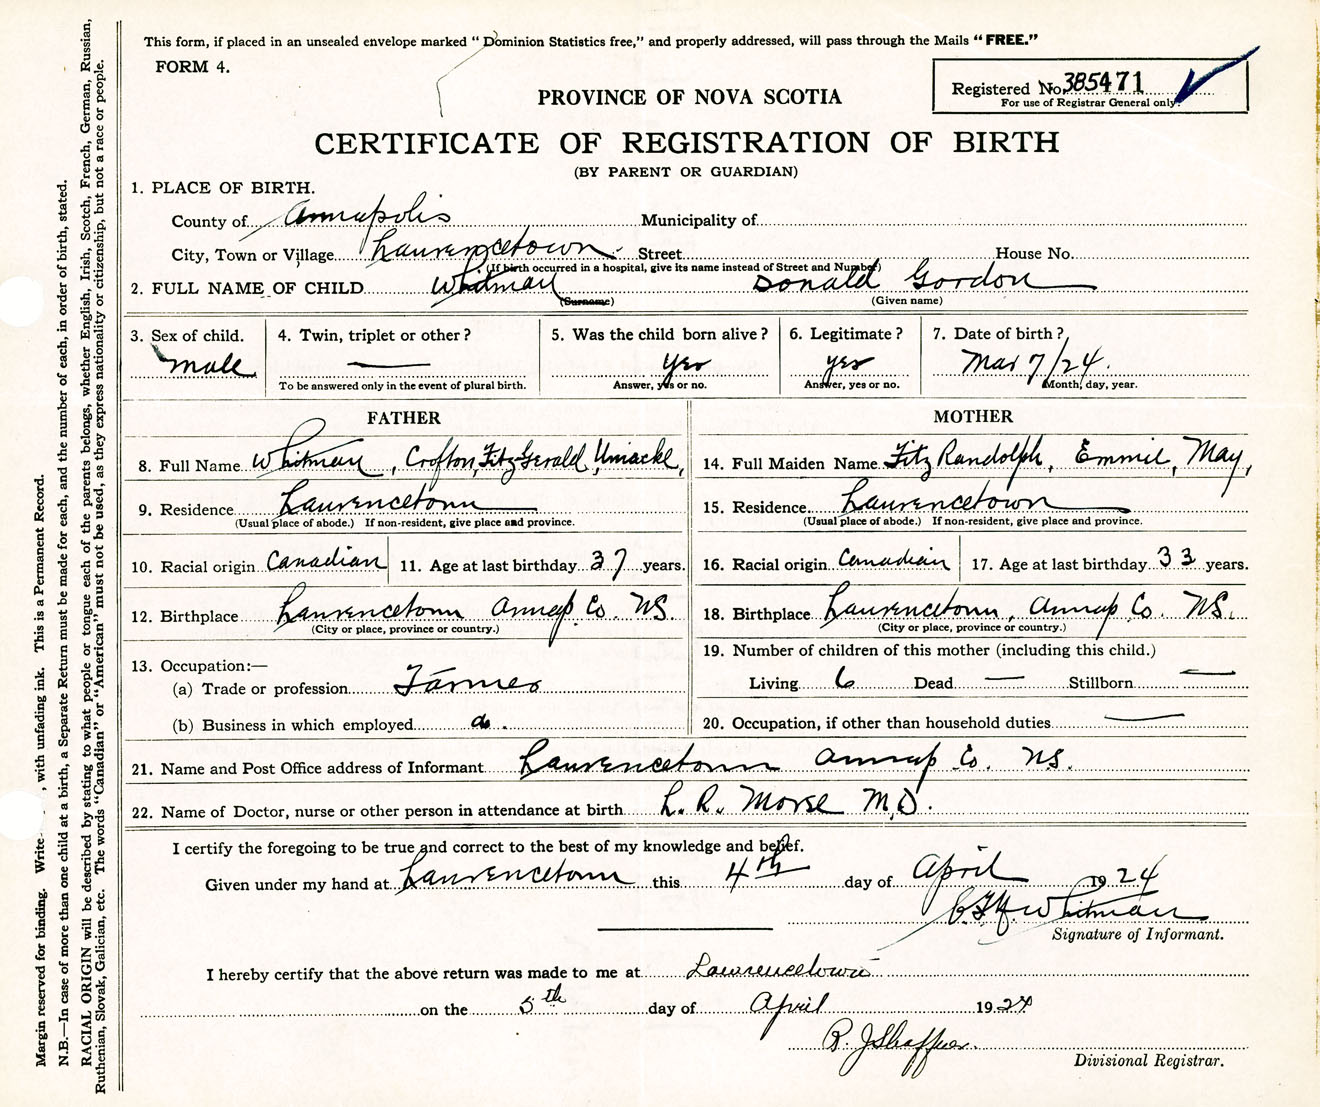 This form, if placed in an unsealed envelope marked "Dominion Statistics free," and properly addressed, will pass through the Mails "FREE."
FORM 4.
Registered No. 385471
For use of Registrar General only.
PROVINCE OF NOVA SCOTIA
CERTIFICATE OF REGISTRATION OF BIRTH
(BY PARENT OR GUARDIAN)
1. PLACE OF BIRTH.
County of Annapolis Municipality of
City, Town or Village Laurencetown Street House No.
(If birth occurred in a hospital, give its name instead of Street and Number)
2. FULL NAME OF CHILD Whitman Donald Gordon
(Surname) (Given name)
3. Sex of child. 4. Twin, triplet or other? 5. Was the child born alive? 6. Legitimate? 7. Date of birth?
male — yes yes Mar 7/24.
To be answered only in the event of plural birth. Answer, yes or no. Answer, yes or no. Month, day, year.
FATHER MOTHER
8. Full Name Whitman, Crofton, Fitz-Gerald, Uniacke, 14. Full Maiden Name Fitz Randolph, Emmie, May,
9. Residence Laurencetown 15. Residence Laurencetown
(Usual place of abode.) If non-resident, give place and province. (Usual place of abode.) If non-resident, give place and province.
10. Racial origin Canadian 11. Age at last birthday 37 years. 16. Racial origin Canadian 17. Age at last birthday 33 years.
12. Birthplace Laurencetown Annap Co. NS. 18. Birthplace Laurencetown, Annap Co. NS.
(City or place, province or country.) (City or place, province or country.)
13. Occupation:— 19. Number of children of this mother (including this child.)
(a) Trade or profession Farmer Living 6 Dead — Stillborn —
(b) Business in which employed do. 20. Occupation, if other than household duties —
21. Name and Post Office address of Informant Laurencetown Annap Co. NS.
22. Name of Doctor, nurse or other person in attendance at birth L. R. Morse M.D.
I certify the foregoing to be true and correct to the best of my knowledge and belief.
Given under my hand at Laurencetown this 4th day of April 1924
C.F.U. Whitman
Signature of Informant.
I hereby certify that the above return was made to me at Lawrencetown
on the 5th day of April 1924
R. J. Shaffner.
Divisional Registrar.
Margin reserved for binding. Write , with unfading ink. This is a Permanent Record.
N.B.—In case of more than one child at a birth, a Separate Return must be made for each, and the number of each, in order of birth, stated.
RACIAL ORIGIN will be described by stating to what people or tongue each of the parents belongs, whether English, Irish, Scotch, French, German, Russian,
Ruthenian, Slovak, Galician, etc. The words "Canadian" or "American" must not be used, as they express nationality or citizenship, but not a race or people.